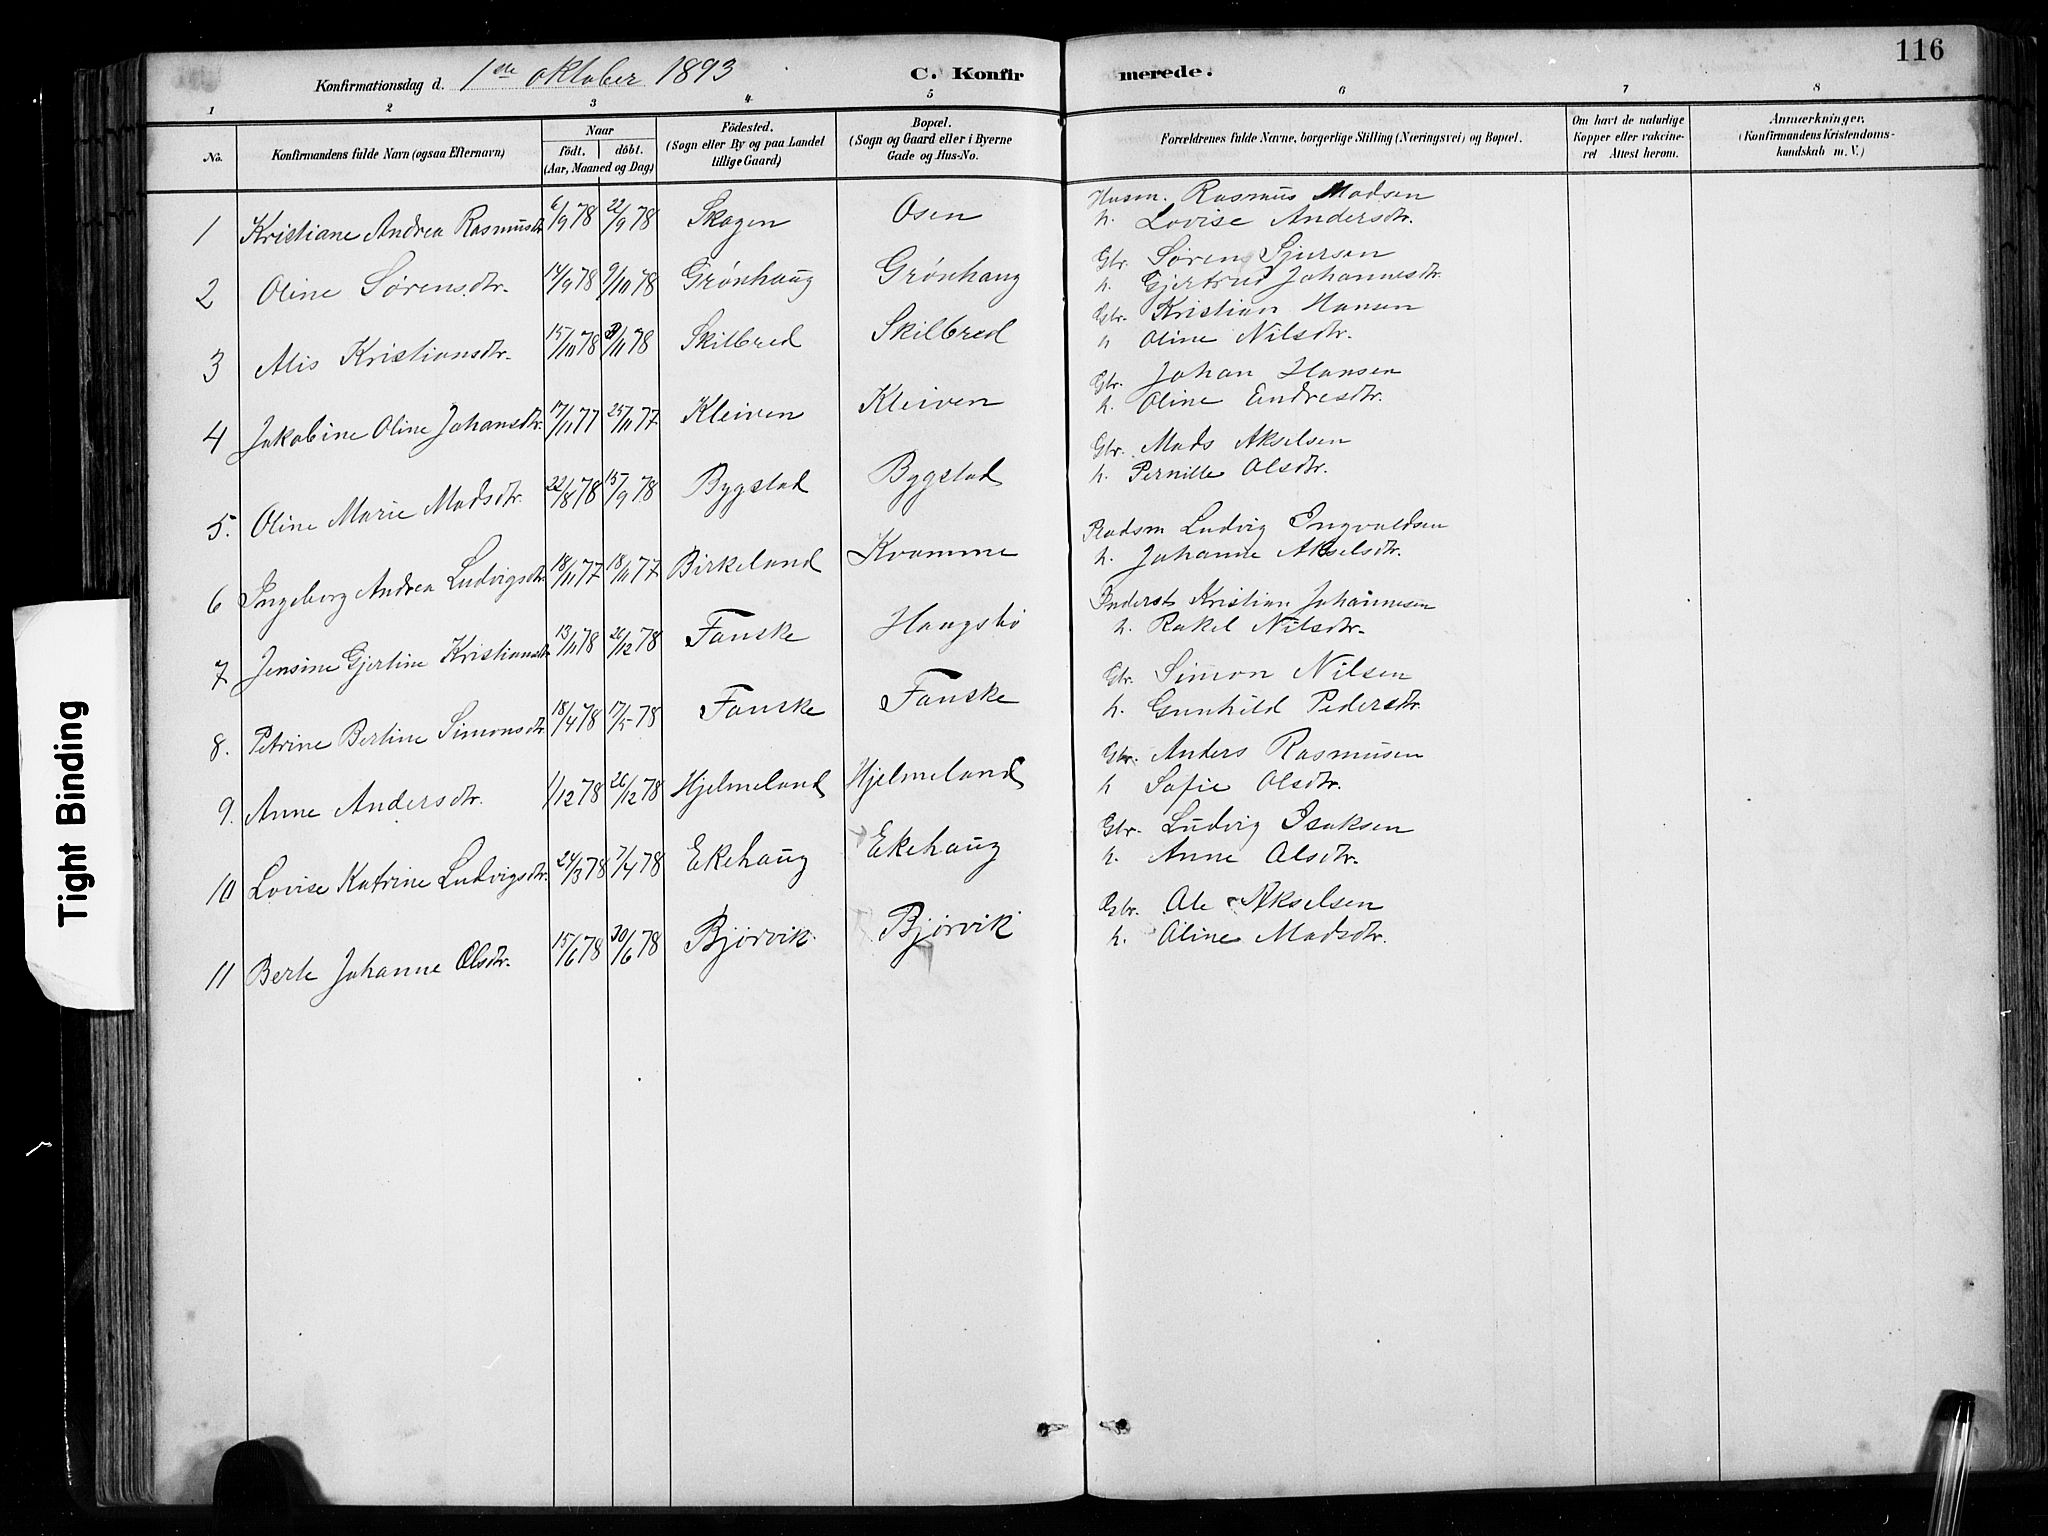 116
Konfirmationsdag d. 1ste oktober 1893 C. Konfirmerede.
1 2 3 4 5 6 7 8
No. Konfirmandens fulde Navn (ogsaa Efternavn) Naar födt. döbt. (Aar, Maaned og Dag) Födested. (Sogn eller By og paa Landet tillige Gaard) Bopæl. (Sogn og Gaard eller i Byerne Gade og Hus-No. Forældrenes fulde Navne, borgerlige Stilling (Næringsvei) og Bopæl. Om havt de naturlige Kopper eller vakcineret Attest herom. Anmærkninger. (Konfirmandens Kristendomskundskab m. V.)
1 Kristiane Andrea Rasmusdtr. 6/9 78 22/9 78 Skogen Osen Husm. Rasmus Madsen
h. Lovise Andersdtr.
2 Oline Sørensdtr. 14/9 78 9/10 78 Grønhaug Grønhaug Gbr. Søren Sjurson
h. Gjertrud Johannesdtr.
3 Alis Kristiansdtr. 15/10 78 3/11 78 Skilbred Skilbred Gbr. Kristian Hansen
h. Oline Nilsdtr.
4 Jakobine Oline Johansdtr. 17/11 77 25/11 77 Kleiven Kleiven Gbr. Johan Hansen
h. Oline Endresdtr.
5. Oline Marie Madsdtr. 22/8 78 15/9 78 Bygstad Bygstad Gbr. Mads Akselsen
h. Pernille Olsdtr.
6 Ingeborg Andrea Ludvigsdtr. 18/11 77 18/11 77 Birkeland Kvamme Pladsm Ludvig Ingvaldsen
h. Johanne Akselsdtr.
7 Jensine Gjertine Kristiansdtr. 13/11 78 26/12 78 Fanske Haugsbø Inderst Kristian Johannesen
h. Rakel Nilsdtr.
8. Petrine Bertine Simonsdtr. 18/4 78 17/5 78 Fanske Fanske Gbr. Simon Nilsen
h. Gunhild Pedersdtr.
9. Anne Andersdtr. 1/12 78 26/12 78 Hjelmeland Hjelmeland Gbr. Anders Rasmusen
h Sofie Olsdtr.
10 Lovise Katrine Ludvigsdtr. 24/3 78 7/4 78 Ekehaug Ekehaug Gbr. Ludvig Isaksen
h. Anne Olsdtr.
11 Berte Johanne Olsdtr. 15/6 78 30/6 78 Bjørvik Bjørvik Gbr. Ole Akselsen
h. Oline Madsdtr.
Tight Binding